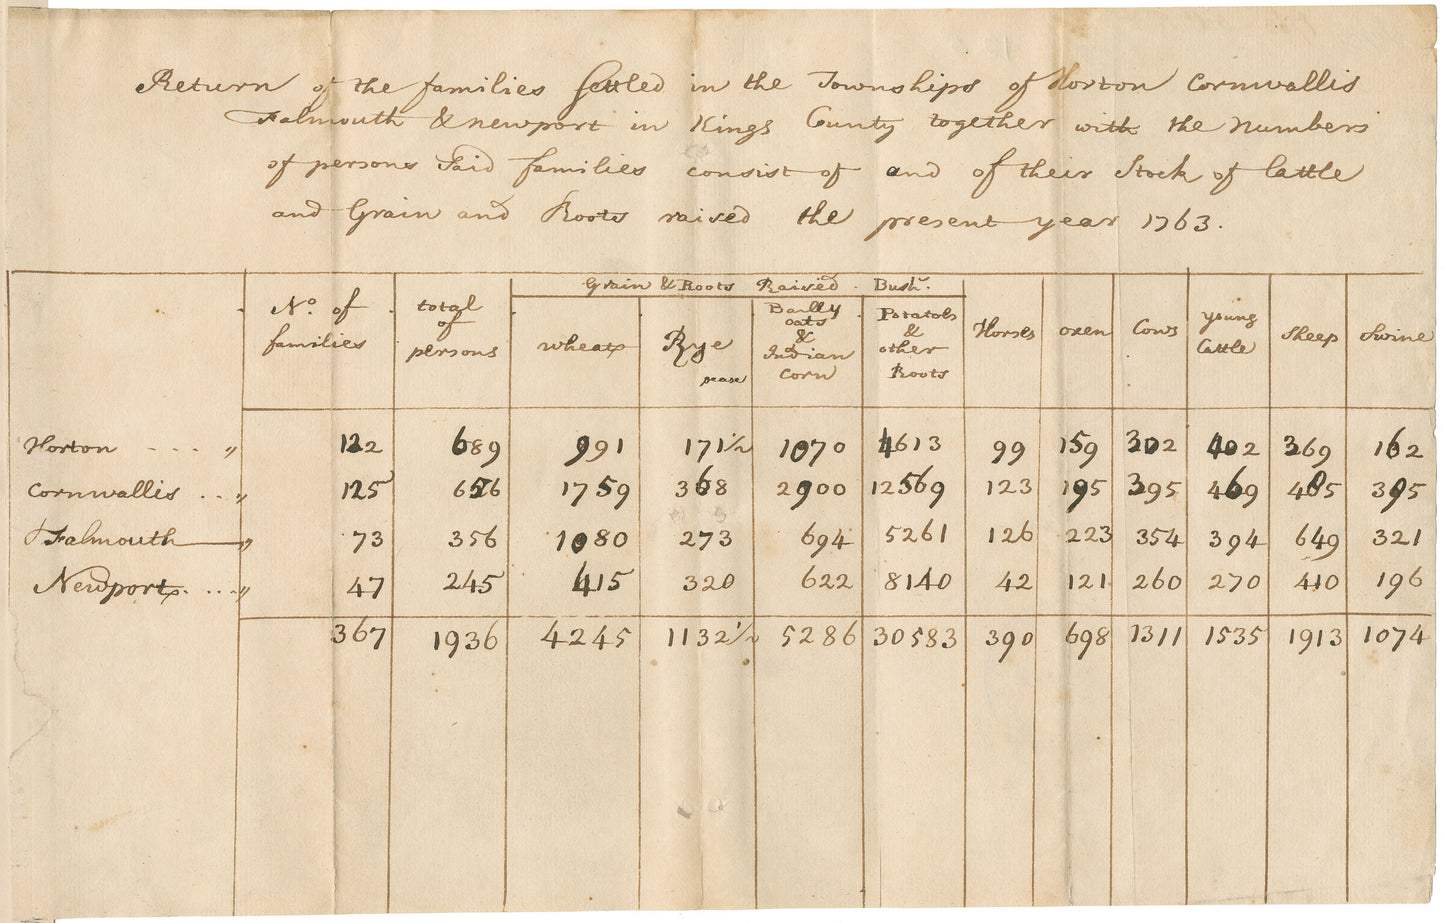 Return of the families Settled in the Townships of Horton Cornwallis
Falmouth & newport in Kings County together with the numbers
of persons Said families consist of and of their Stock of Cattle
and Grain and Roots raised the present year 1763.
Grain & Roots Raised. Bushˢ.
Nº. of families total of persons wheat Rye pease Barlly oats & Indian corn Potatoes & other Roots Horses oxen Cows young Cattle Sheep Swine
Horton - - - " 122 689 991 171½ 1070 4613 99 159 302 402 369 162
Cornwallis . . " 125 656 1759 368 2900 12569 123 195 395 469 485 395
Falmouth " 73 356 1080 273 694 5261 126 223 354 394 649 321
Newport . . . . " 47 245 415 320 622 8140 42 121 260 270 410 196
367 1936 4245 1132½ 5286 30583 390 698 1311 1535 1913 1074